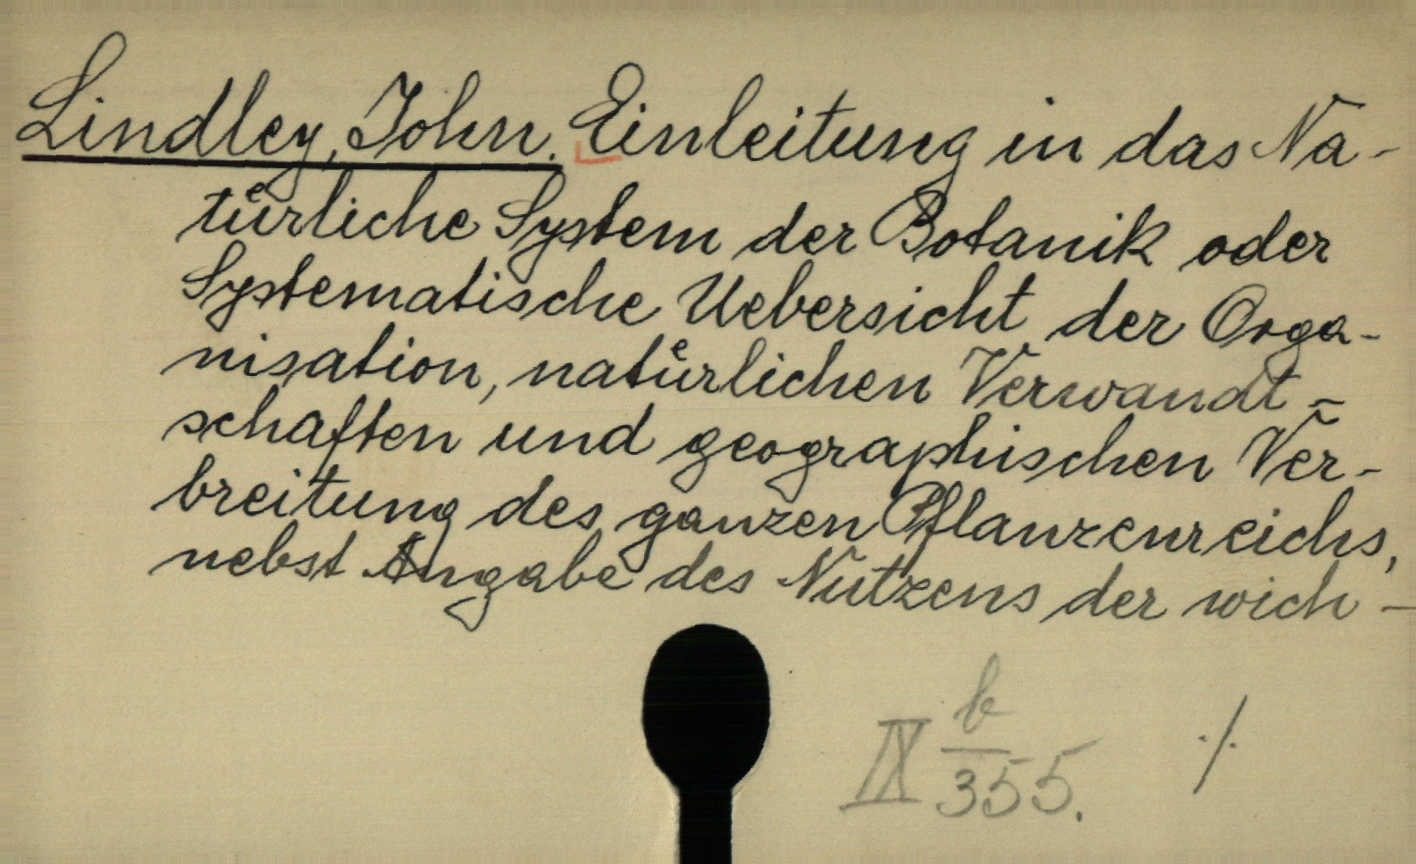 Lindley, John. Einleitung in das Na-
türliche System der Botanik oder
Systematische Uebersicht der Orga-
nisation, natürlichen Verwandt-
schaften und geographischen Ver-
breitung des ganzen Pflanzenreichs,
nebst Angabe des Nutzens der wich-
IX b/355. ·/.